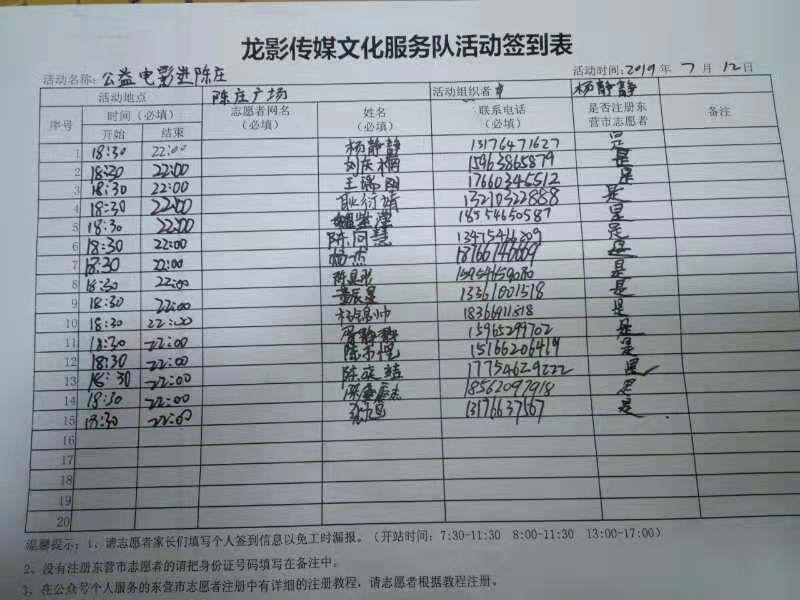 龙影传媒文化服务队活动签到表
活动名称：公益电影进陈庄 活动时间：2019年 7月 12日
活动地点 陈庄广场 活动组织者 杨静静
序号 时间（必填） 志愿者网名（必填） 姓名（必填） 联系电话（必填） 是否注册东营市志愿者 备注
开始 结束
1 18:30 22:00 杨静静 13176471627 是
2 18:30 22:00 15963865879 是
3 18:30 22:00 17660345512 是
4 18:30 22:00 13210322888 是
5 18:30 22:00 18554650587 是
6 18:30 22:00 13475466209 是
7 18:30 22:00 杨杰 是
8 18:30 22:00 是
9 18:30 22:00 13361001518 是
10 18:30 22:00 18366911818 是
11 18:30 22:00 15965299702 是
12 18:30 22:00 15166206419 是
13 18:30 22:00 17754629222 是
14 18:30 22:00 18562097918 是
15 18:30 22:00 是
16
17
18
19
20
温馨提示：1、请志愿者家长们填写个人签到信息以免工时漏报。（开站时间：7:30-11:30 8:00-11:30 13:00-17:00）
2、没有注册东营市志愿者的请把身份证号码填写在备注中。
3、在公众号个人服务的东营市志愿者注册中有详细的注册教程，请志愿者根据教程注册。